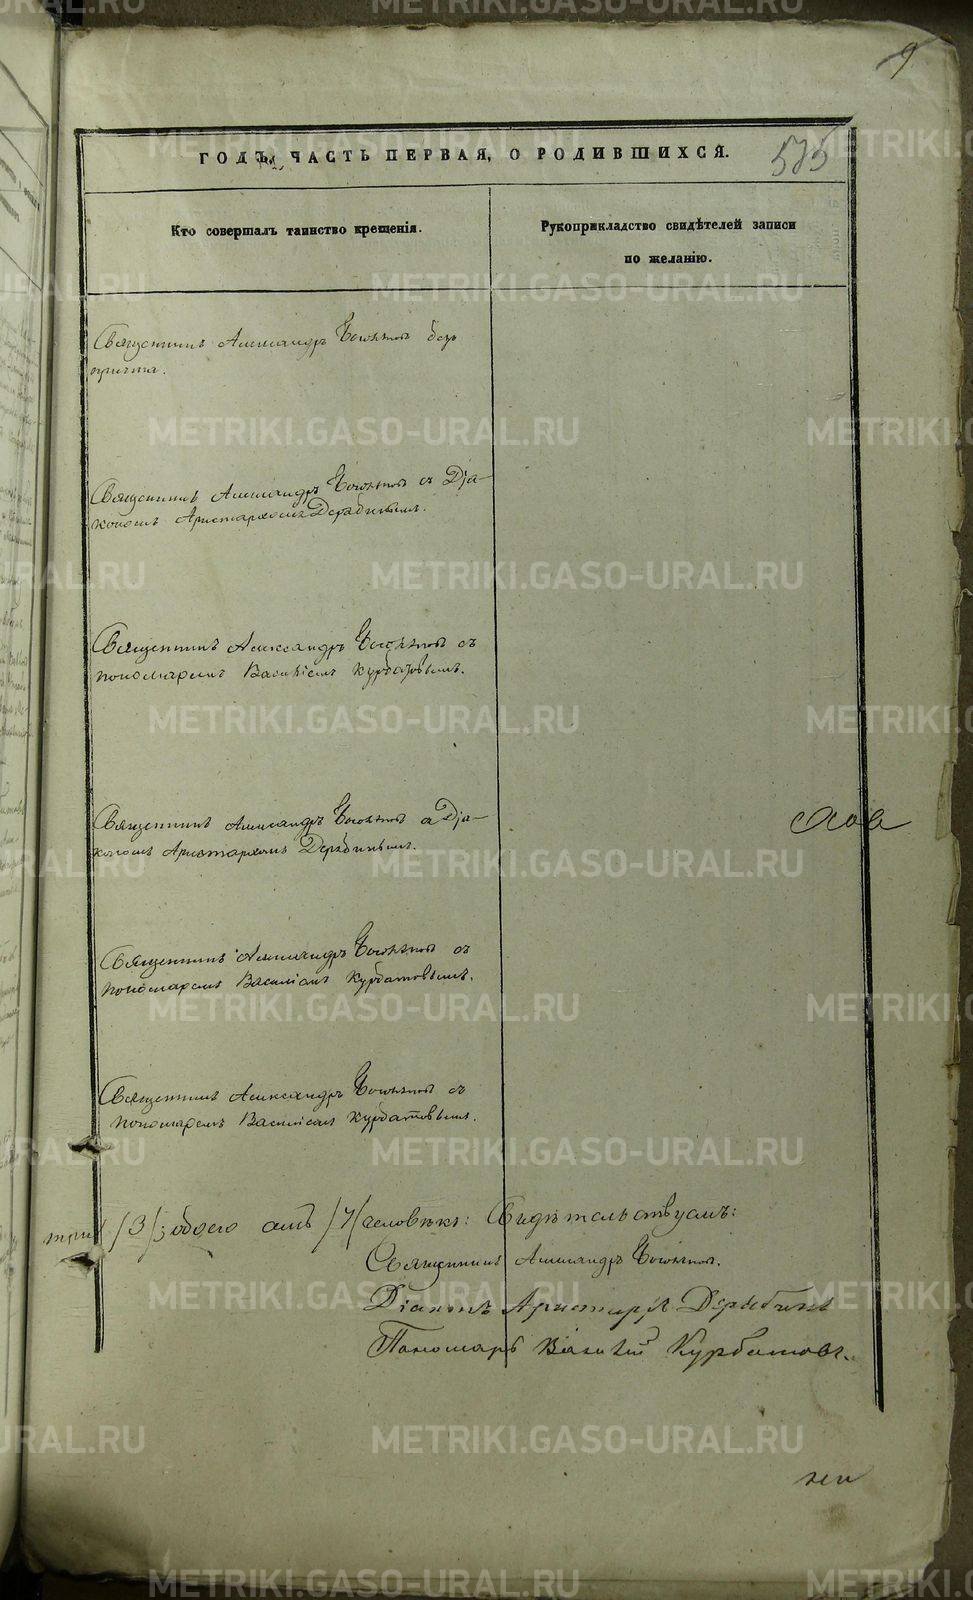 9
ГОДЪ, ЧАСТЬ ПЕРВАЯ, О РОДИВШИХСЯ.
575
Кто совершалъ таинство крещенія.
Рукоприкладство свидѣтелей записи
по желанію.
Священникъ Александръ безъ
причта.
Священникъ Александръ съ Діа-
кономъ Аристархомъ Дерябинымъ.
Священникъ Александръ съ
пономаремъ Василіемъ Курбатовымъ.
Священникъ Александръ съ Діа-
кономъ Аристархомъ Дерябинымъ.
Священникъ Александръ съ
пономаремъ Василіемъ Курбатовымъ.
Священникъ Александръ съ
пономаремъ Василіемъ Курбатовымъ.
/3/; обоего /7/ человѣкъ: Свидѣтельствуемъ:
Священникъ Александръ
Діаконъ Аристархъ Дерябинъ
Пономарь Василій Курбатовъ.
METRIKI.GASO-URAL.RU